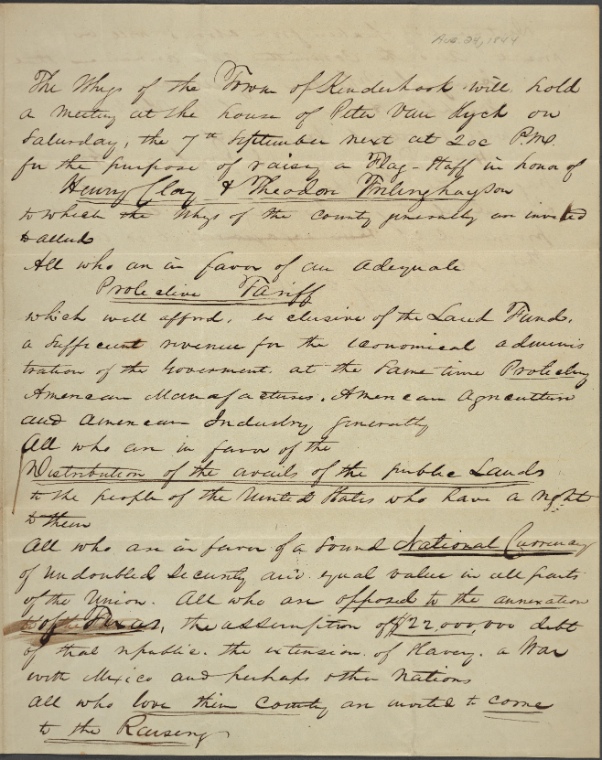 Aug. 28, 1844
The Whigs of the Town of Kinderhook will hold
a meeting at the house of Peter Van Dych on
Saturday, the 7th September next at 2 oc P.M.
for the purpose of raising a Flag-Staff in honor of
Henry Clay & Theodore Frelinghuyson
to which the Whigs of the county generally are invited
to attend
All who are in favor of an adequate
Protective Tariff
which will afford, exclusive of the Land Funds,
a sufficient revenue for the economical adminis
tration of the Goverment. at the same time Protecting
American Manufactures, American Agriculture
and American Industry generally
All who are in favor of the
Distribution of the avails of the public Lands
to the people of the United States who have a right
to them
All who are in favor of a Sound National Currency
of undoubled security and equal value in all parts
of the Union. All who are opposed to the annexation
of Texas, the assumption of $22,000,000 debt
of that republic. the extension of Slavery. a War
with Mexico and perhaps other Nations
All who love their Country are invited to come
to the Raising